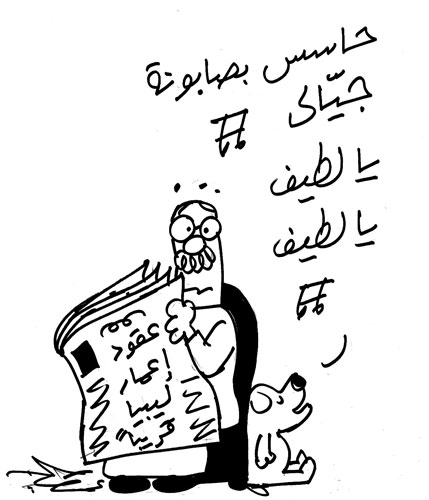 حاسس بصابونة
جيّالى
!!
يا لطيف
يا لطيف
!!
عقود
إعمار
ليبيا
قريباً